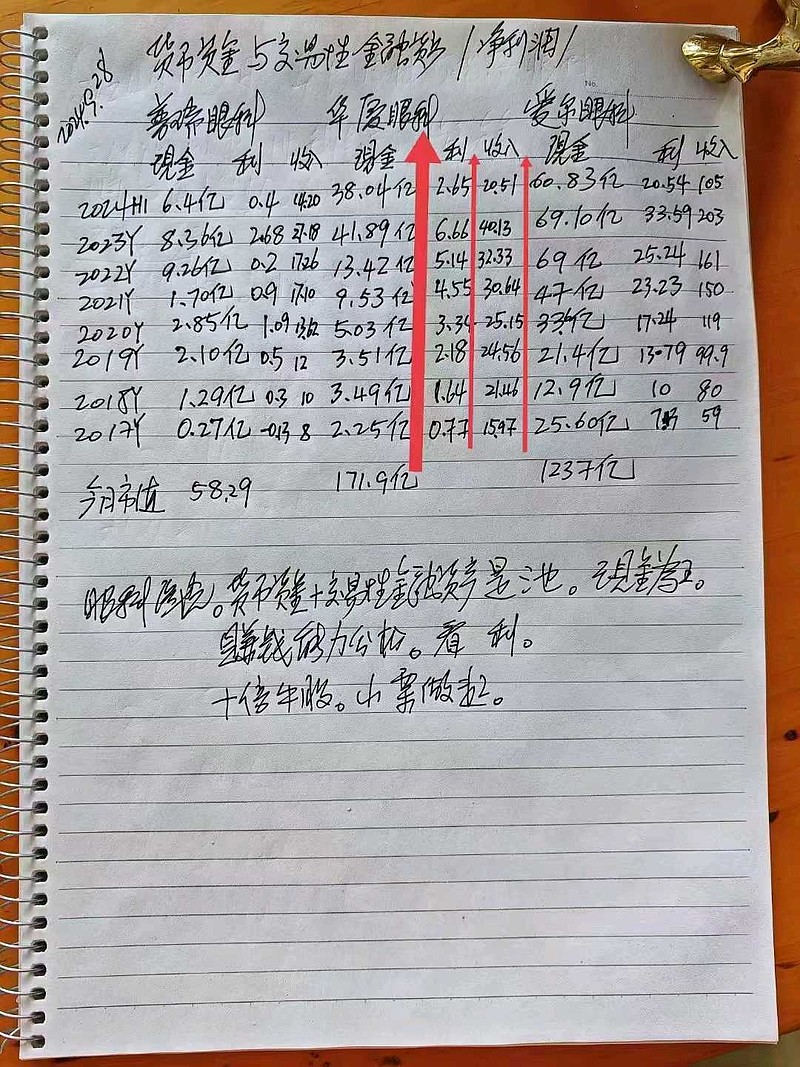 货币资金与交易性金融资产/净利润/
2024.9.28
普瑞眼科 华厦眼科 爱尔眼科
现金 利 收入 现金 利 收入 现金 利 收入
2024H1 6.4亿 0.4 14.20 38.04亿 2.65 20.51 60.83亿 20.54 105
2023Y 8.36亿 2.68 27.18 41.89亿 6.66 40.13 69.10亿 33.59 203
2022Y 9.26亿 0.2 17.26 13.42亿 5.14 32.33 69亿 25.24 161
2021Y 1.70亿 0.9 17.10 9.53亿 4.55 30.64 47亿 23.23 150
2020Y 2.85亿 1.09 13.62 5.03亿 3.34 25.15 亿 17.24 119
2019Y 2.10亿 0.5 12 3.51亿 2.18 24.56 21.4亿 13.79 99.9
2018Y 1.29亿 0.3 10 3.49亿 1.64 21.46 12.9亿 10 80
2017Y 0.27亿 -0.13 8 2.25亿 0.77 15.97 25.60亿 59
今日市值 58.29 171.9亿 1237亿
眼科医院。货币资金+交易性金融资产是池。现金为王。
赚钱能力分析。看利。
十倍牛股。小票做起。